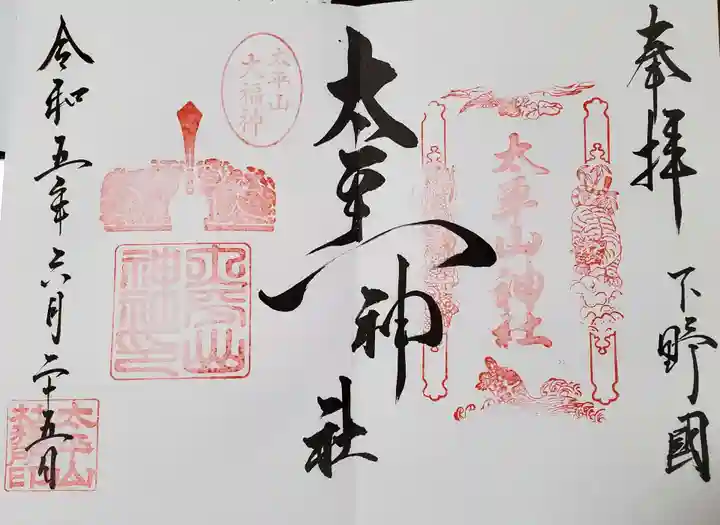 奉拝
下野國
太平山神社
太平山神社
太平山
大福神
太平山
神社之印
令和五年六月二十五日
太平山